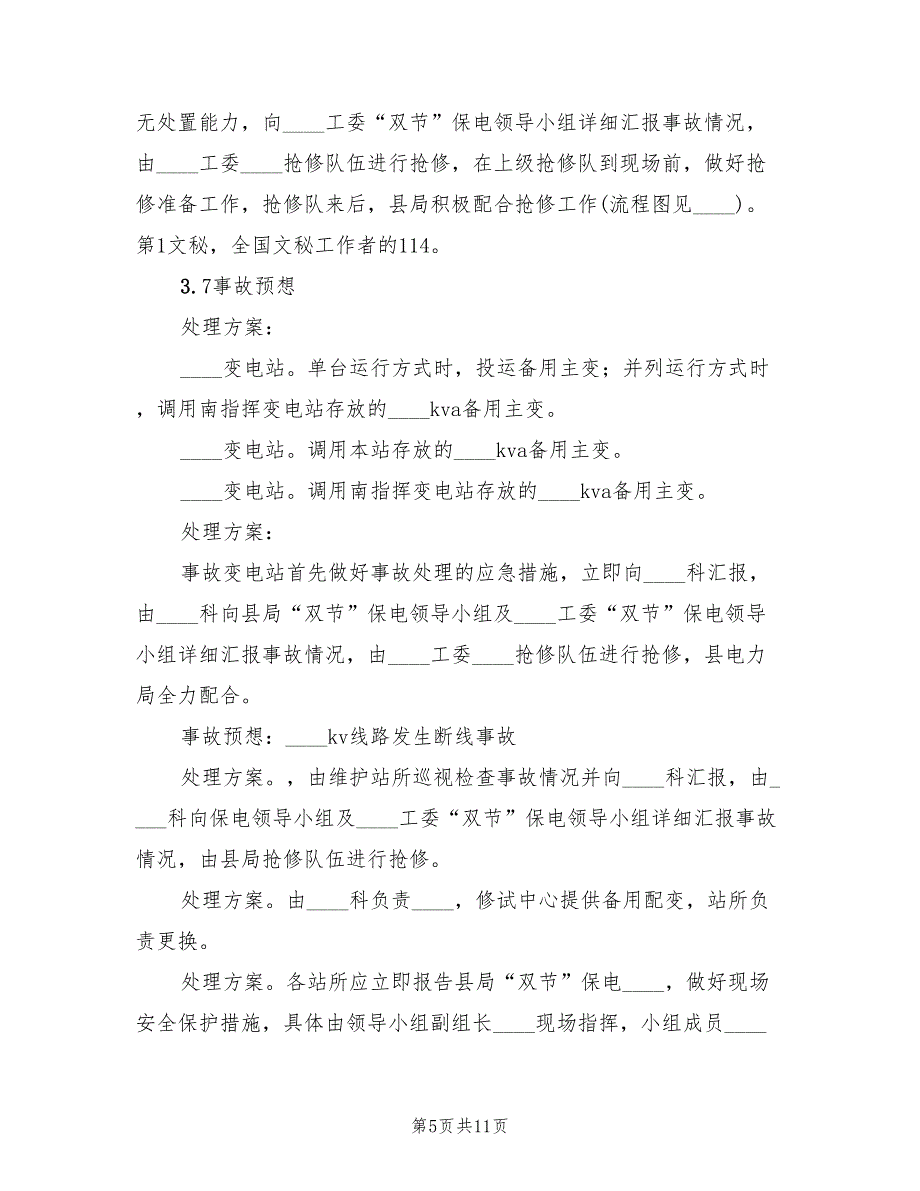 无处置能力，向____工委“双节”保电领导小组详细汇报事故情况，
由____工委____抢修队伍进行抢修，在上级抢修队到现场前，做好抢
修准备工作，抢修队来后，县局积极配合抢修工作(流程图见____)。
第1文秘，全国文秘工作者的114。
3.7事故预想
处理方案：
____变电站。单台运行方式时，投运备用主变；并列运行方式时
，调用南指挥变电站存放的____kva备用主变。
____变电站。调用本站存放的____kva备用主变。
____变电站。调用南指挥变电站存放的____kva备用主变。
处理方案：
事故变电站首先做好事故处理的应急措施，立即向____科汇报，
由____科向县局“双节”保电领导小组及____工委“双节”保电领导
小组详细汇报事故情况，由____工委____抢修队伍进行抢修，县电力
局全力配合。
事故预想：____kv线路发生断线事故
处理方案。，由维护站所巡视检查事故情况并向____科汇报，由_
___科向保电领导小组及____工委“双节”保电领导小组详细汇报事故
情况，由县局抢修队伍进行抢修。
处理方案。由____科负责____，修试中心提供备用配变，站所负
责更换。
处理方案。各站所应立即报告县局“双节”保电____，做好现场
安全保护措施，具体由领导小组副组长____现场指挥，小组成员____
第5页共11页